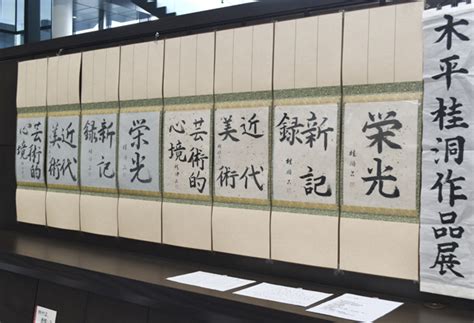 木平桂洞作品展
栄光
新記
録
近代
美術
芸術的
心境
栄光
新記
録
近代
美術
芸術的
心境